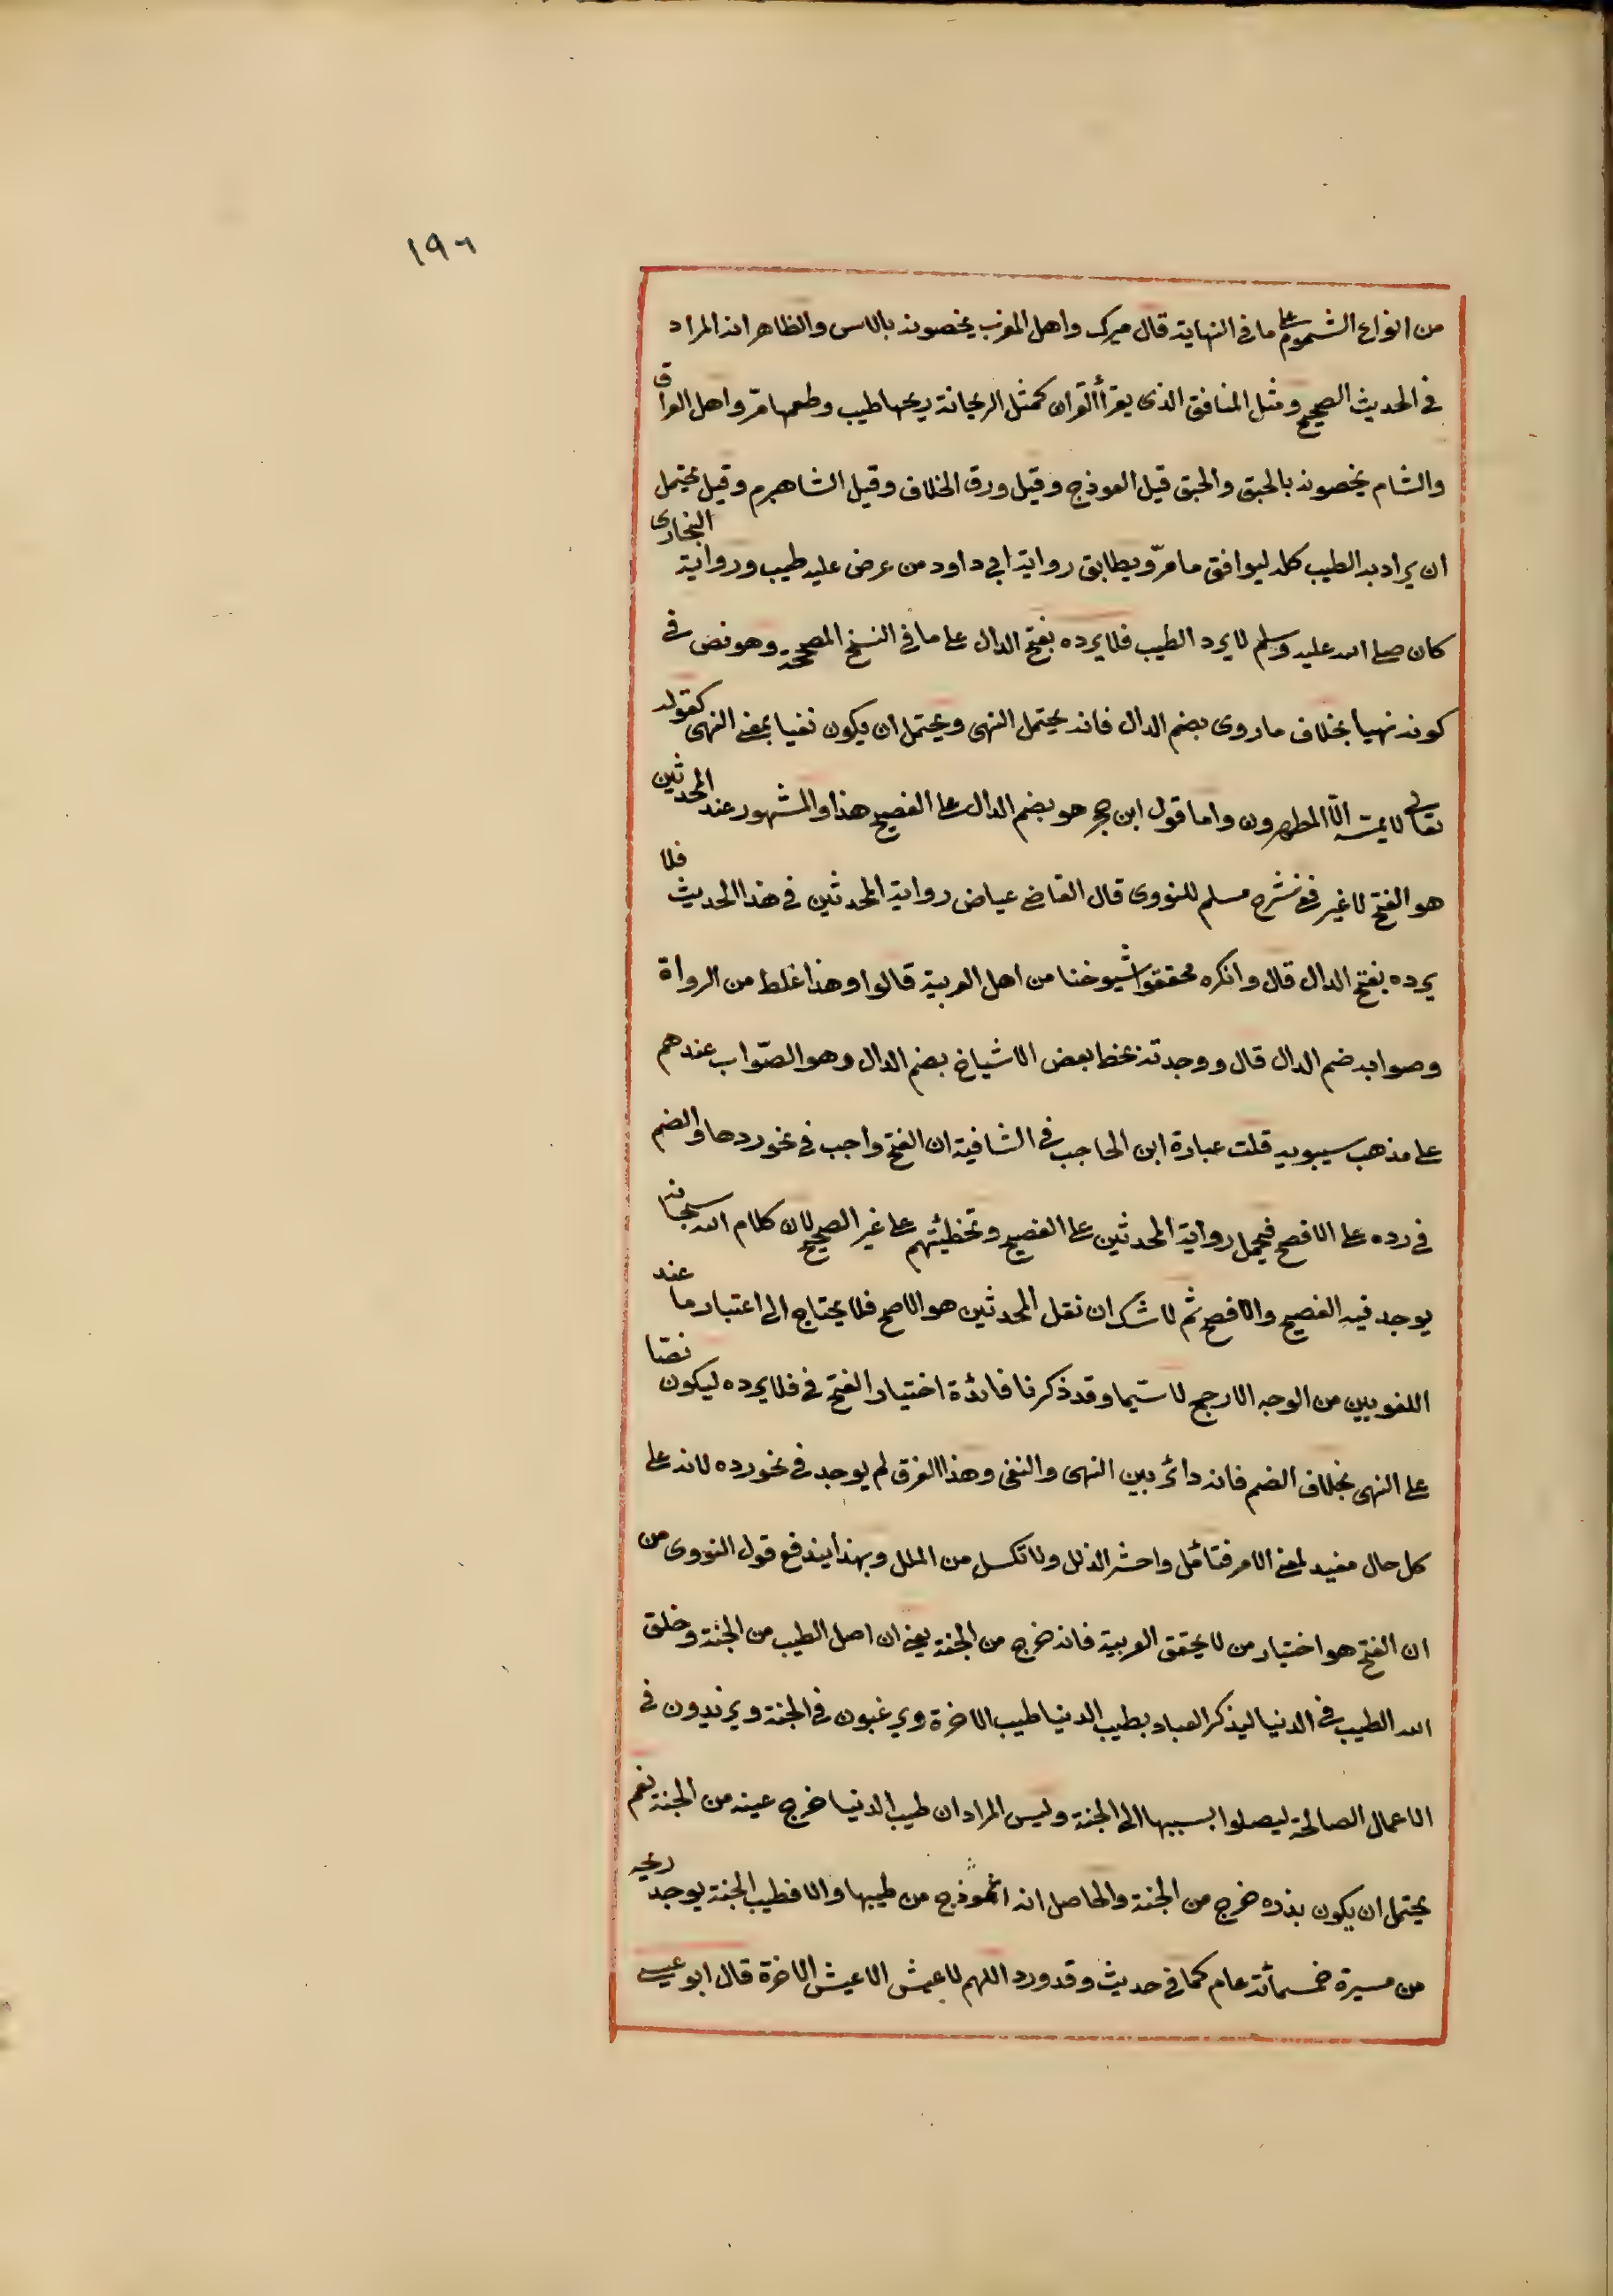 ١٩٦
من انواع الشموم على ما فى النهاية قال ميرك واهل المغرب يخصونه بالاس والظاهر انه المراد
فى الحديث الصحيح ومثل المنافق الذى يقرأ القران كمثل الريحانة ريحها طيب وطعمها مرّ واهل العراق
والشام يخصونه بالحبق والحبق قيل الفوذج وقيل ورق الخلاف وقيل الشاهبرم وقيل يحتمل
ان يراد به الطيب كله ليوافق ما مرّ ويطابق رواية ابى داود من عرض عليه طيب ورواية البخارى
كان صلى الله عليه وسلم لا يرد الطيب فلا يرده بفتح الدال على ما فى النسخ المصححة وهو نص فى
كونه نهيا بخلاف ما روى بضم الدال فانه يحتمل النهى ويحتمل ان يكون نفيا بمعنى النهى كقوله
تعالى لا يمسّه الّا المطهرون واما قول ابن حجر هو بضم الدال على الفصيح هذا والمشهور عند المحدثين
هو الفتح لا غير ففى شرح مسلم للنووى قال القاضى عياض رواية المحدثين فى هذا الحديث فلا
يرده بفتح الدال قال وانكره محققوا شيوخنا من اهل العربية قالوا وهذا غلط من الرواة
وصوابه ضم الدال قال ووجدته بخط بعض الاشياخ بضم الدال وهو الصّواب عندهم
على مذهب سيبويه قلت عبارة ابن الحاجب فى الشافية ان الفتح واجب فى نحو ردها والضم
فى رده على الافصح فيحمل رواية المحدثين على الفصيح وتخطيئهم على غير الصحيح لان كلام الله سبحانه
يوجد فيه الفصيح والافصح ثم لا شك ان نقل المحدثين هو الاصح فلا يحتاج الى اعتبار ما عند
اللغويين من الوجه الارجح لا سيّما وقد ذكرنا فائدة اختيار الفتح فى فلا يرده ليكون نصّا
على النهى بخلاف الضم فانه دائر بين النهى والنفى وهذا الفرق لم يوجد فى نحو رده لانه على
كل حال مفيد لمعنى الامر فتامّل واحشر الذلل ولا تكسل من الملل وبهذا يندفع قول النووى من
ان الفتح هو اختيار من لا يحقق العربية فانه خرج من الجنة يعنى ان اصل الطيب من الجنة وخلق
الله الطيب فى الدنيا ليذكر العباد بطيب الدنيا طيب الاخرة ويرغبون فى الجنة ويزيدون فى
الاعمال الصالحة ليصلوا بسببها الى الجنة وليس المراد ان طيب الدنيا خرج عينه من الجنة نعم
يحتمل ان يكون بذره خرج من الجنة والحاصل انه انموذج من طيبها والا فطيب الجنة يوجد ريحه
من مسيرة خمسمائة عام كما فى حديث وقد ورد اللهم لا عيش الا عيش الاخرة قال ابو عيسى